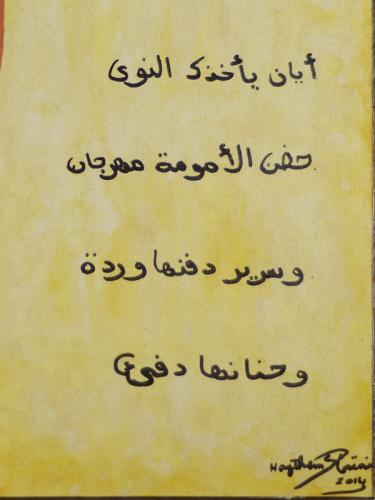 أيان يأخذك النوى
حضن الأمومة مهرجان
وسرير دفنها وردة
وحنانها دفئ
Haythem
2014